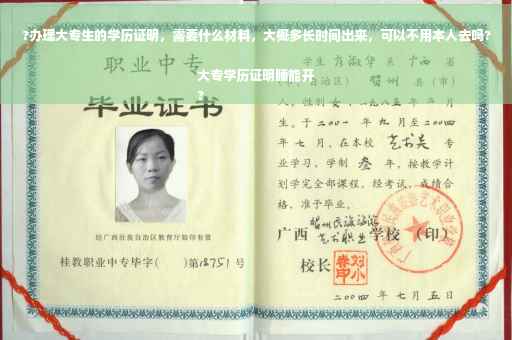 ?办理大专生的学历证明，需要什么材料，大概多长时间出来，可以不用本人去吗?
大专学历证明哪能开
?
职业中专
毕业证书
经广西壮族自治区教育厅验印有效
桂教职业中专毕字（ ）第13751号
学生 淑华 系 广西 省
（市、自治区） 县（市、区）
人，性别 女，一九八五年 二 月
生。于二00一年 九 月至二00四
年 七 月，在本校 艺术类 专
业学习，学制 叁 年，按教学计
划学完全部课程，经考试，成绩合
格，准予毕业。
广西 贺州民族旅游
艺术职业 学校（印）
校长
二00四年 七 月 五 日